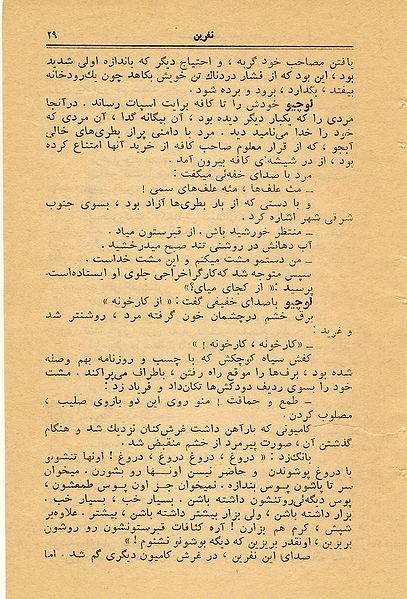 ۲۹
نفرین
یافتن مصاحب خود گربه ، و احتیاج دیگر که باندازه اولی شدید
بود ، این بود که از فشار دردناك تن خویش بکاهد چون یك‌رودخانه
بیفتد ، بگذارد ، برود و برده شود .
لوچیو خودش را تا کافه برایت اسپات رساند . درآنجا
مردی را که یکبار دیگر دیده بود ، آن بیگانه گدا ، آن مردی که
خود را خدا می‌نامید دید . مرد با دامنی پراز بطری‌های خالی
آبجو ، که از قرار معلوم صاحب کافه از خرید آنها امتناع کرده
بود ، از در شیشه‌ای کافه بیرون آمد .
مرد با صدای خفه‌ئی میگفت :
ــ مث علف‌ها ، مثه علف‌های سمی !
و با دستی که از بار بطری‌ها آزاد بود ، بسوی جنوب
شرقی شهر اشاره کرد .
ــ منتظر خورشید باش . از قبرستون میاد .
آب دهانش در روشنی تند صبح میدرخشید .
ــ من دستمو مشت میکنم و این مشت خداست .
سپس متوجه شد که‌کارگراخراجی جلوی او ایستاده‌است.
پرسید : « از کجای میای؟»
لوچیو باصدای خفیفی گفت : « از کارخونه »
برق خشم درچشمان خون گرفته مرد ، روشنتر شد
و غرید :
ــ «کارخونه ، کارخونه ! »
کفش سیاه کوچکش که با چسب و روزنامه بهم وصله
شده بود ، برف‌ها را موقع راه رفتن ، باطراف می‌پراکند . مشت
خود را بسوی ردیف دودکش‌ها تکان‌داد و فریاد زد :
ــ طمع و حماقت ! منو روی این دو بازوی صلیب ،
مصلوب کردن .
کامیونی که بارآهن داشت غرش‌کنان نزدیك شد و هنگام
گذشتن آن ، صورت پیرمرد از خشم منقبض شد .
بانگ‌زد : « دروغ ، دروغ دروغ ، دروغ ! اونها تنشونو
با دروغ پوشوندن و حاضر نیسن اونـــها رو بشورن . میخوان
سر تا پاشون پـوس بندازه . نمیخوان جـز اون پـوس طمعشون ،
پوس دیگه‌ئی‌روتنشون داشته باشن . بسیار خب ، بسیار خب .
بزار داشته باشن ، ولی بزار بیشتر داشته باشن ، بیشتر . علاوه‌بر
شپش ، کرم هم بزارن ! آره کثافات قبرستونشون رو روشون
بریزین ، اونقدر بریزین که دیگه بوشونو نشنوم ! »
صدای این نفرین ، در غرش کامیون دیگری گم شد . اما